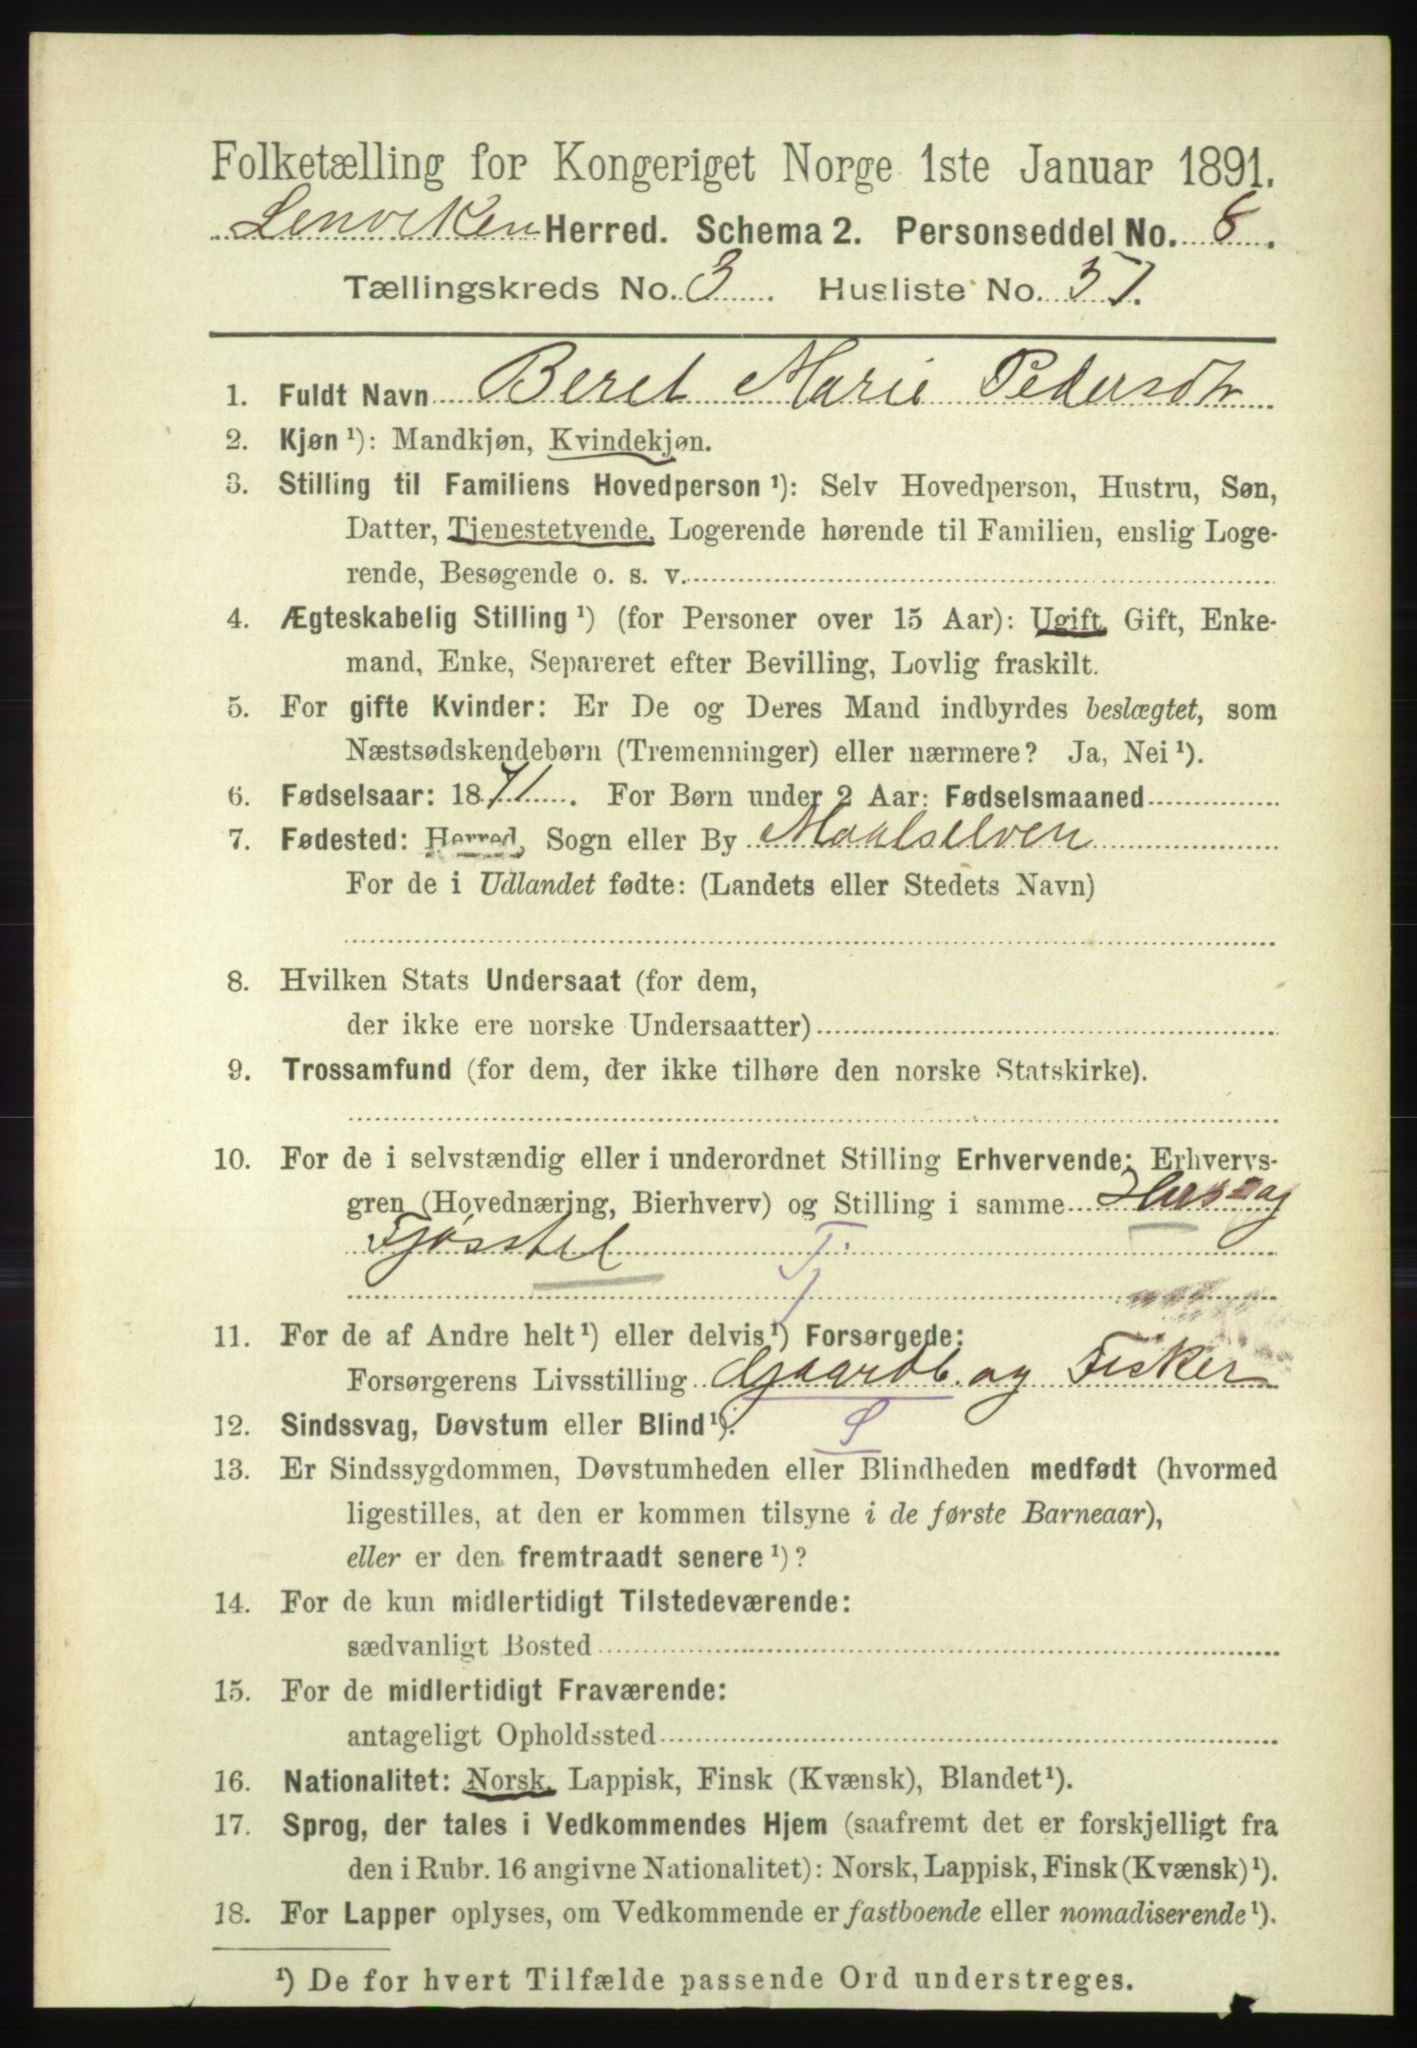 Folketælling for Kongeriget Norge 1ste Januar 1891.
Lenviken Herred. Schema 2. Personseddel No. 8.
Tællingskreds No. 3. Husliste No. 51.
1. Fuldt Navn Beret Marie Pedersdtr
2. Kjøn ¹): Mandkjøn, Kvindekjøn.
3. Stilling til Familiens Hovedperson ¹): Selv Hovedperson, Hustru, Søn,
Datter, Tjenestetyende, Logerende hørende til Familien, enslig Loge-
rende, Besøgende o. s. v.
4. Ægteskabelig Stilling ¹) (for Personer over 15 Aar): Ugift, Gift, Enke-
mand, Enke, Separeret efter Bevilling, Lovlig fraskilt.
5. For gifte Kvinder: Er De og Deres Mand indbyrdes beslægtet, som
Næstsødskendebørn (Tremenninger) eller nærmere? Ja, Nei ¹).
6. Fødselsaar: 1871. For Børn under 2 Aar: Fødselsmaaned
7. Fødested: Herred, Sogn eller By Maalselven
For de i Udlandet fødte: (Landets eller Stedets Navn)
8. Hvilken Stats Undersaat (for dem,
der ikke ere norske Undersaatter)
9. Trossamfund (for dem, der ikke tilhøre den norske Statskirke).
10. For de i selvstændig eller i underordnet Stilling Erhvervende: Erhvervs-
gren (Hovednæring, Bierhverv) og Stilling i samme Hus og
Fjøsstel T.
11. For de af Andre helt ¹) eller delvis ¹) Forsørgede:
Forsørgerens Livsstilling Gaardb. og Fisker
12. Sindssvag, Døvstum eller Blind ¹). S
13. Er Sindssygdommen, Døvstumheden eller Blindheden medfødt (hvormed
ligestilles, at den er kommen tilsyne i de første Barneaar),
eller er den fremtraadt senere ¹)?
14. For de kun midlertidigt Tilstedeværende:
sædvanligt Bosted
15. For de midlertidigt Fraværende:
antageligt Opholdssted
16. Nationalitet: Norsk, Lappisk, Finsk (Kvænsk), Blandet ¹).
17. Sprog, der tales i Vedkommendes Hjem (saafremt det er forskjelligt fra
den i Rubr. 16 angivne Nationalitet): Norsk, Lappisk, Finsk (Kvænsk) ¹).
18. For Lapper oplyses, om Vedkommende er fastboende eller nomadiserende ¹).
¹) De for hvert Tilfælde passende Ord understreges.